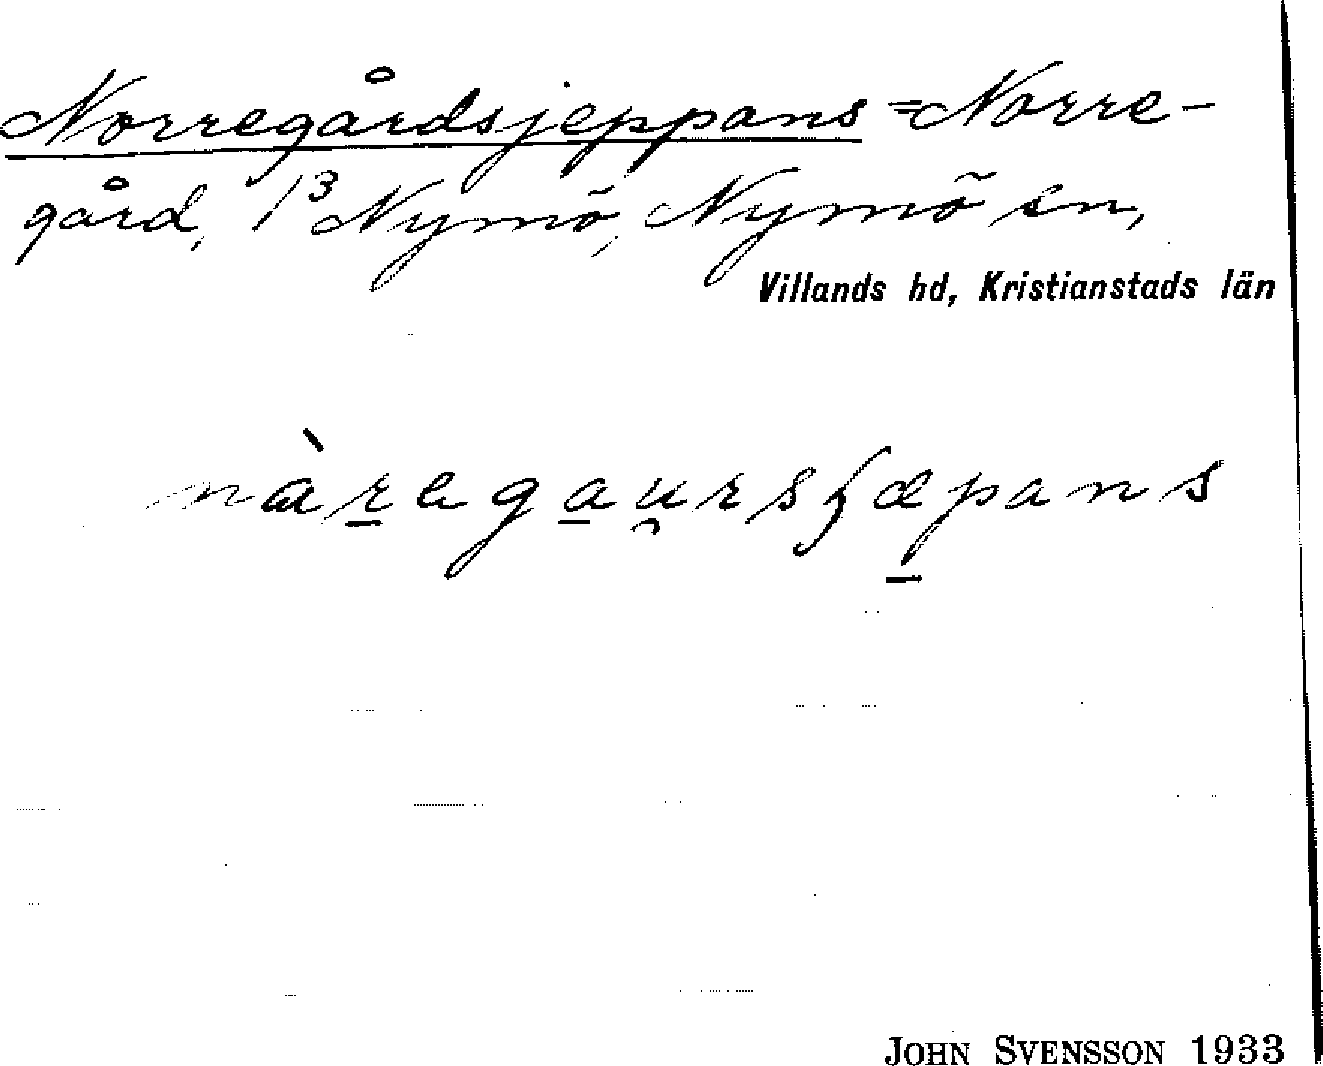 Norregårdsjeppans = Norre-
gård, 1³ Nymö, Nymö sn,
Villands hd, Kristianstads län
nàr̲ega̲u̯rsʝæp̲ans
JOHN SVENSSON 1933